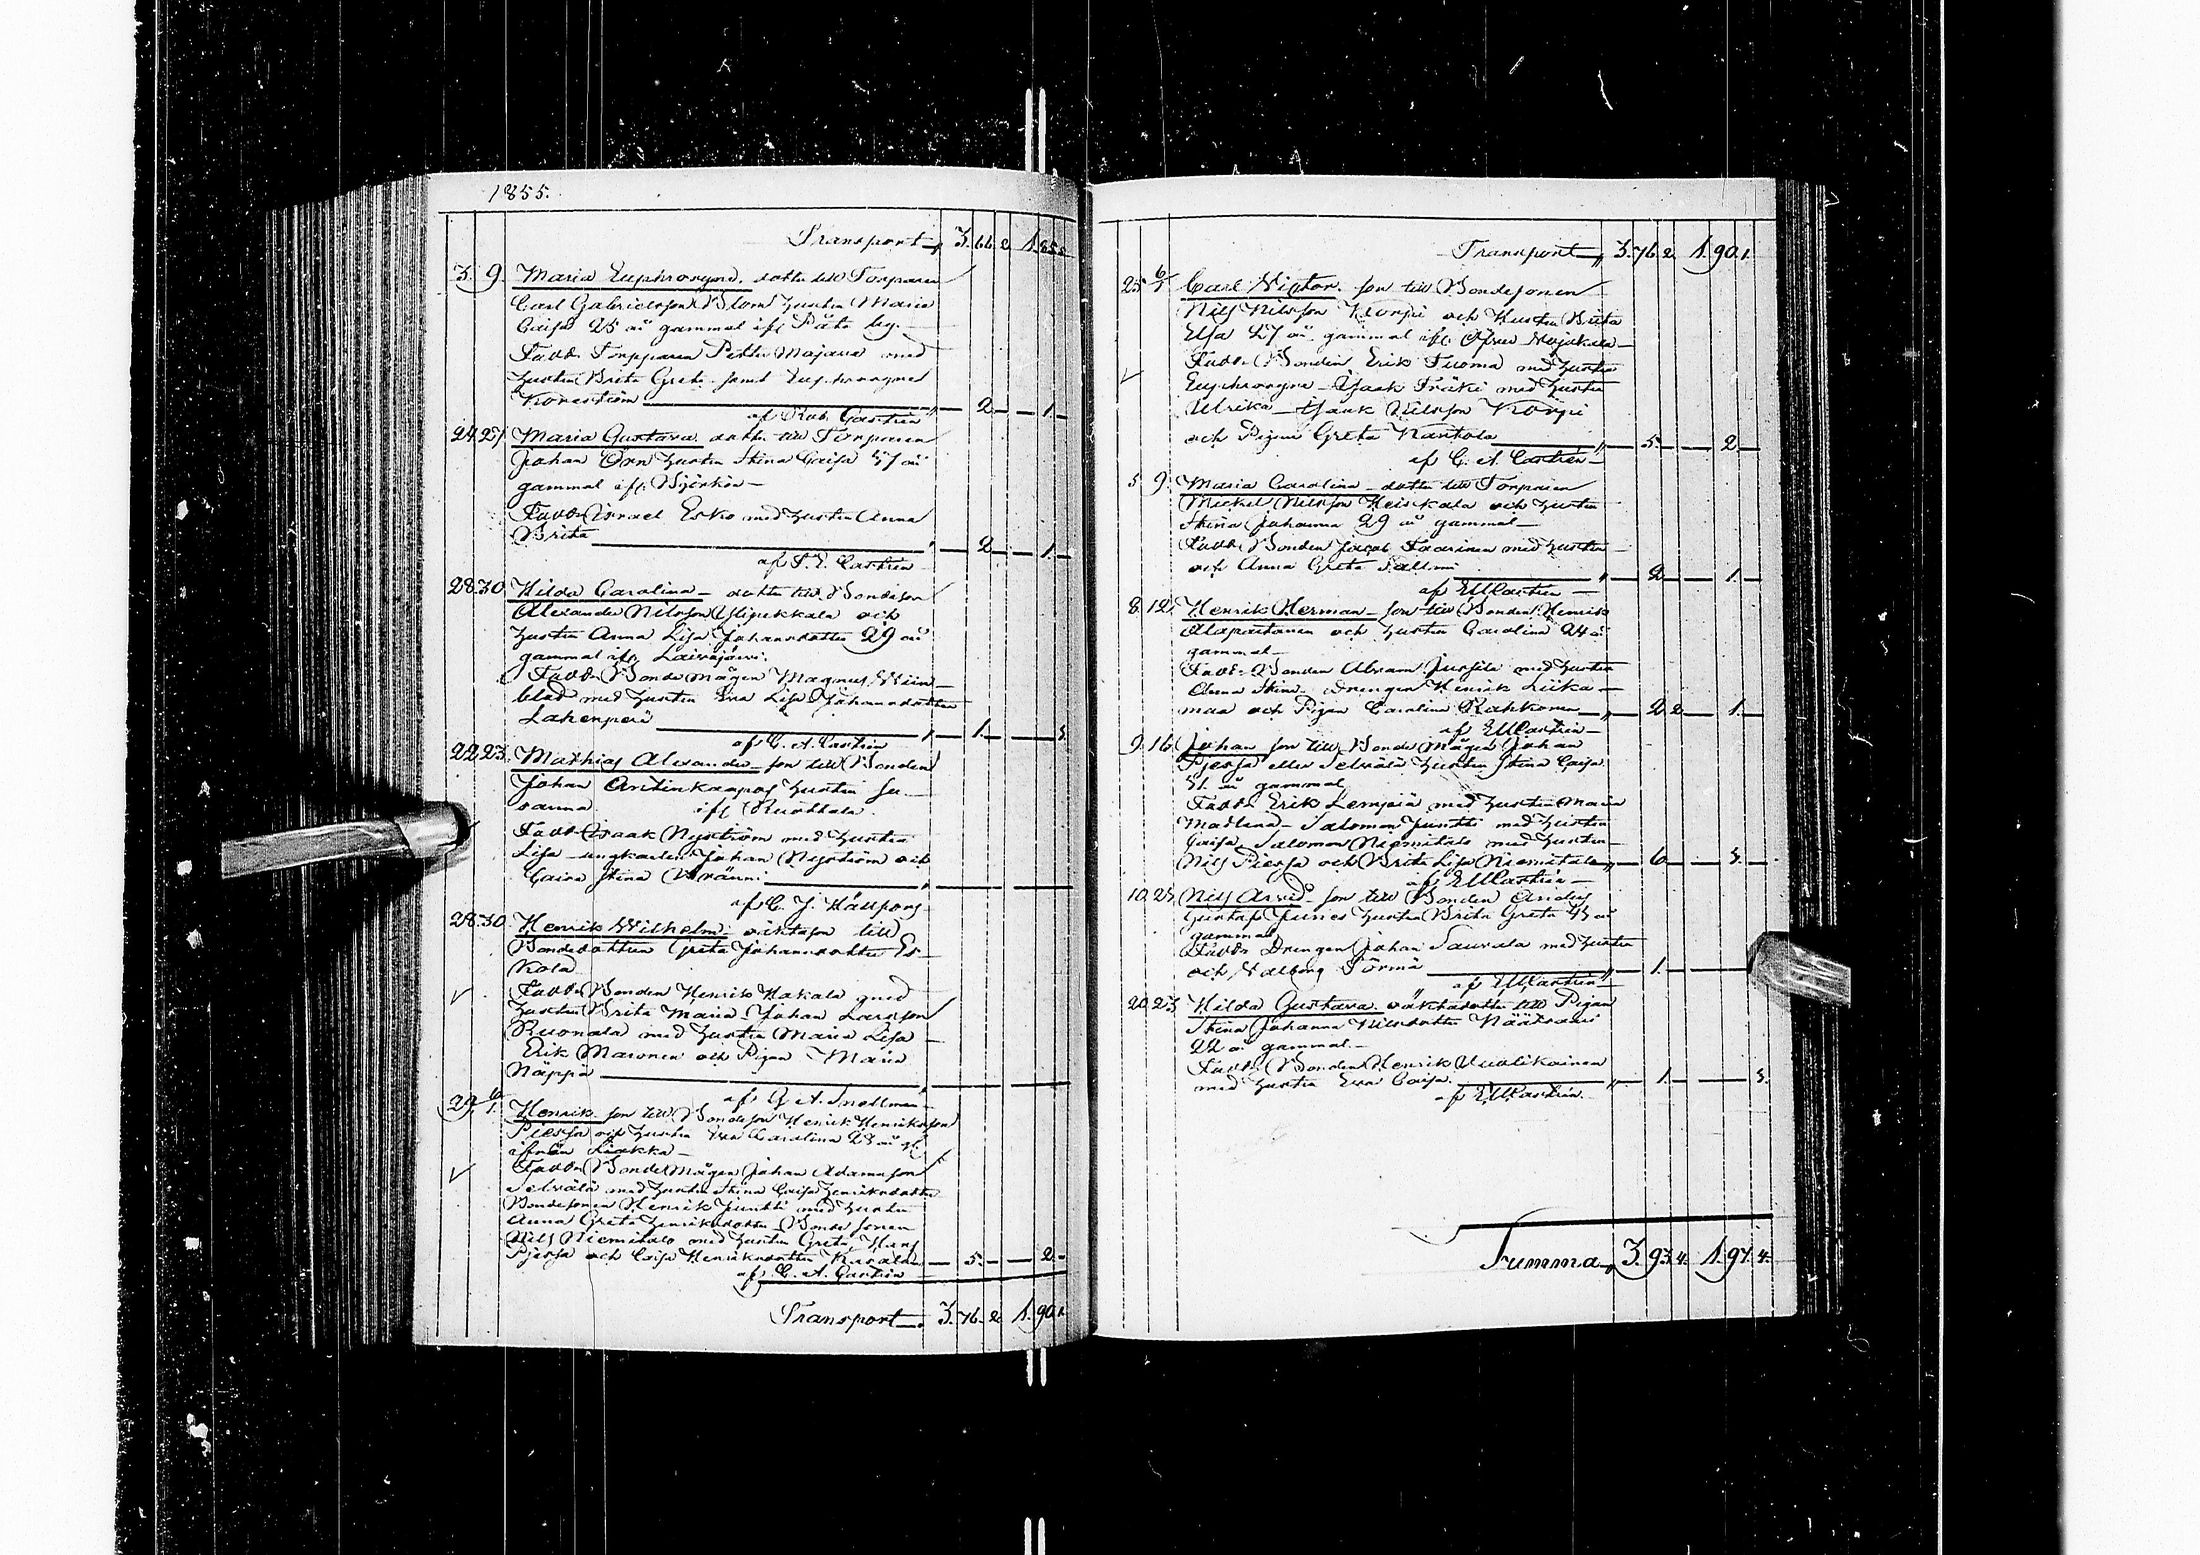 1855.
Transport 3. 66. 2. 1. 85.
3. 9. Maria Euphrosyne. dotter till Torparen
Carl Gabrielsson Blom hustru Maria
Caisa 25 år gammal ifr. Päta by.
Fadd. Torpparen Petter Majava med
hustru Brita Greta samt Euphrosyne
Korström 2. 1.
af Rob. Castrén
24. 27. Maria Gustava. dotter till Torparen
Johan Örn hustru Stina Caisa 37 år
gammal ifr. Björkön
Fadd. Israel Esko med hustru Anna
Brita 2. 1.
af Castrén
28. 30. Hilda Carolina dotter till Bondeson
Alexander Nilsson Ylipekkala och
hustru Anna Lisa Johansdotter 29 år
gammal ifr. Laivajärvi.
Fadd. Bonde mågen Magnus Wiin
blad med hustru Eva Lisa Johansdotter
Lakenperä 1.
af C. A. Castrén
22. 23. Mathias Alexander son till Bonden
Johan Antinkaapos hustru Su
sanna ifr Ruottala.
Fadd. Isaak Nyström med hustru
Lisa ungkarlen Johan Nyström och
Caisa Stina Bränni
af C. J. Hällfors
28. 30. Henrik Wilhelm oäkta son till
Bondedottren Greta Johansdotter Es
kola
Fadd. Bonden Henrik Hakala med
hustru Brita Maria Johan Larsson
Ruonala med hustru Maria Lisa
Erik Maronen och Pigan Maria
Näppä
af G. A. Snellman
29. 6/1. Henrik son till Bondeson Henrik Henriksson
Piessa och hustru Eva Carolina 23 år gl.
ifrån Liakka
Fadd. BondeMågen Johan Adamsson
Selrälä med hustru Stina Caisa Henriksdotter
Bondesonen Henrik Juntti med hustru
Anna Greta Henriksdotter Bonde sonen
Nils Niemitalo med hustru Greta, Hans
Pjessa och Caisa Henriksdotter 5. 2.
af C. A. Castrén
Transport 3. 76. 2. 1. 90. 1.
Transport 3. 76. 2. 1. 90. 1.
25 6/1 Carl Victor. son till Bondesonen
Nils Nilsson Korpi och Hustru Brita
Elsa 27 år gammal ifr. Öfre Wojakala
Fadd. Bonden Erik Tuoma med hustru
Euphrosyne Isaak Träki med hustru
Ulrika Isaak Nilsson Korpi
och Pigan Greta Kantola 5. 2.
af C. A. Castrén
5 9. Maria Carolina dotter till Torparen
Mickel Nilsson Heiskala och hustru
Stina Johanna 29 år gammal
Fadd. Bonden Jacob Taarinen med hustru
och Anna Greta 2. 1.
af EMCastrén
8. 12. Henrik Herman son till Bonden Henrik
Alapartanen och hustru Carolina 24 år
gammal
Fadd. Bonden Abram Jussila med hustru
Anna Stina. Drengen Henrik Liika
maa och Pigan Carolina Rahkonen 2. 2. 1.
af EMCastrén
9. 16. Johan son till Bonde Mågen Johan
Pjessa eller Selrälä hustru Stina Caisa
31 år gammal
Fadd. Erik Lempiä med hustru Maria
Madlena Salomon Juntti med hustru
Caisa Salomon Niemitalo med hustru
Nils Piessa och Brita Lisa Niemitalo 6. 3.
af EMCastrén
10. 25. Nils Arvid son till Bonden Anders
Gustaf Junes hustru Brita Greta 43 år
gammal
Fadd. Drengen Johan Saurala med hustru
och Walborg Törmä 1.
af EMCastrén
20. 23 Hilda Gustava oäkta dotter till Pigan
Stina Johanna Nilsdotter Näätsaari
22 år gammal.
Fadd. Bonden Henrik Vuolikainen
med hustru Eva Caisa. 1. 3.
af EMCastrén.
Summa 3. 93. 4. 1. 97. 4.